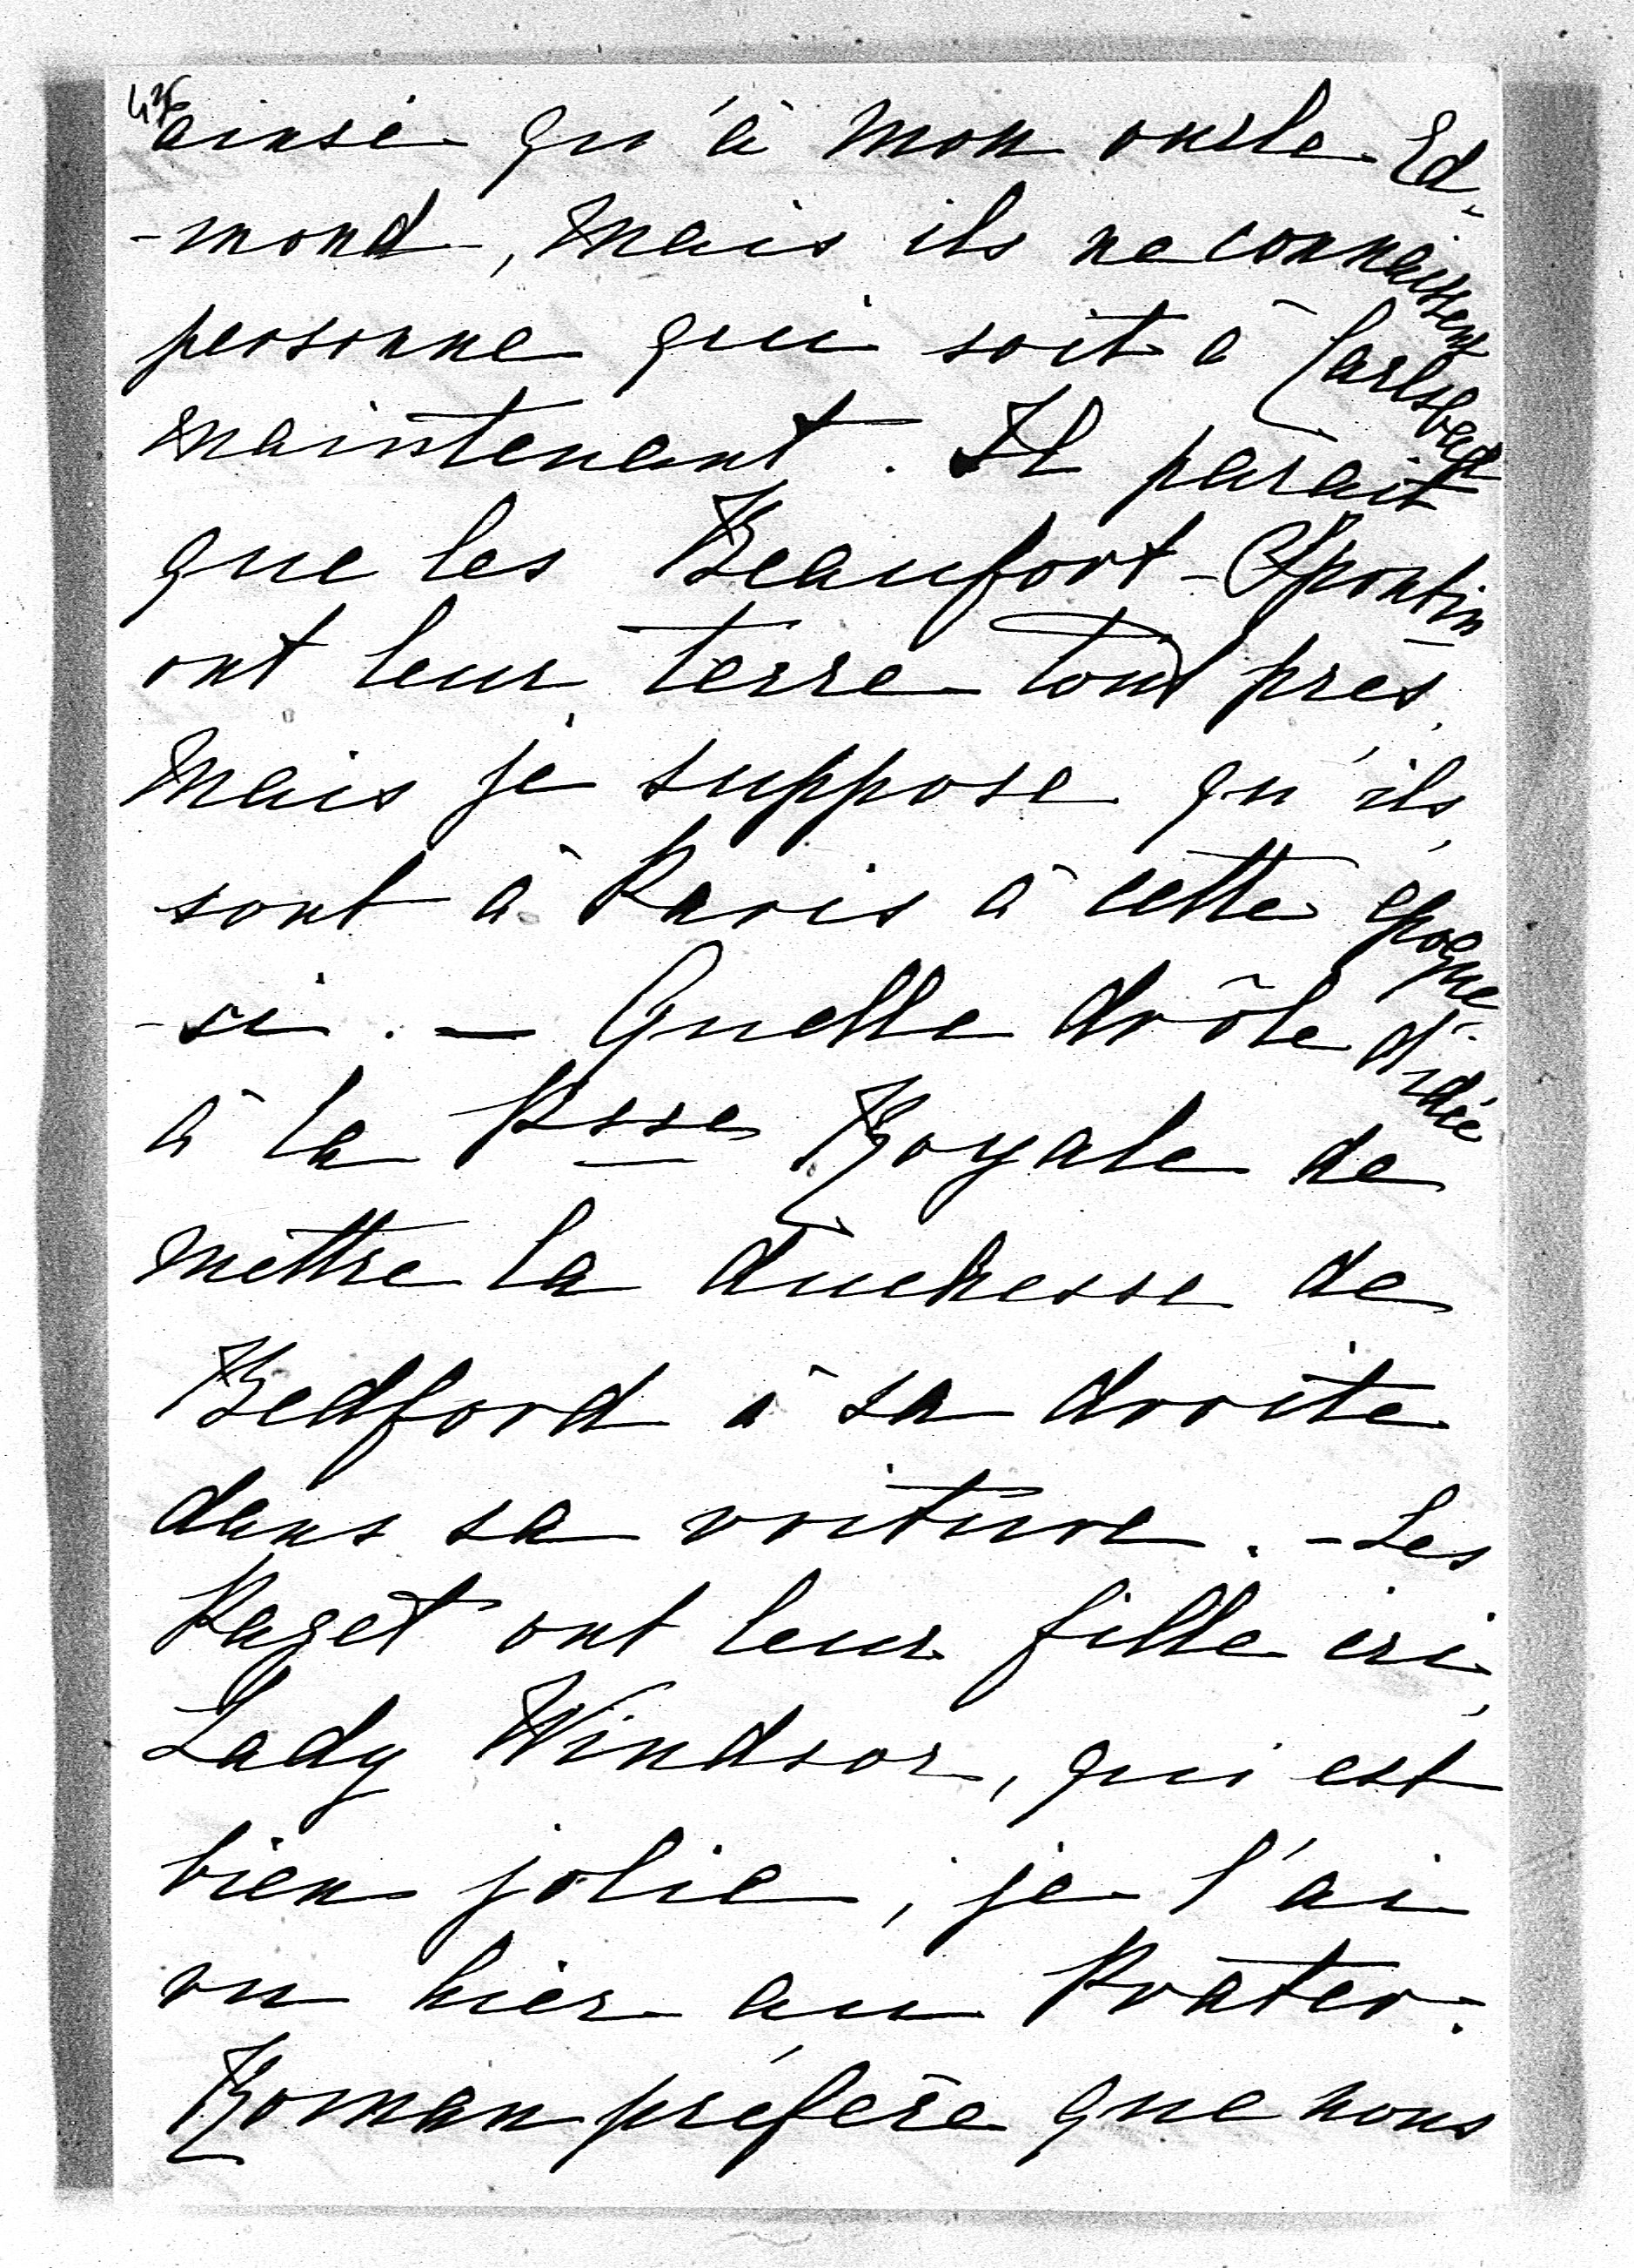 ainsi qu'à mon oncle Ed-
-mond, mais ils ne connaissent
personne qui soit à Carlsbad
maintenant. Il parait
que les Beaufort-Spontin
ont leur terre tout près,
mais je suppose qu'ils
sont à Paris à cette époque-
-ci. — Quelle drôle d'idée
à la Psse Royale de
mettre la duchesse de
Bedford à sa droite
dans sa voiture. - Les
Paget ont leur fille ici,
Lady Windsor, qui est
bien jolie, je l'ai
vu hier au Prater.
Roman préfère que nous